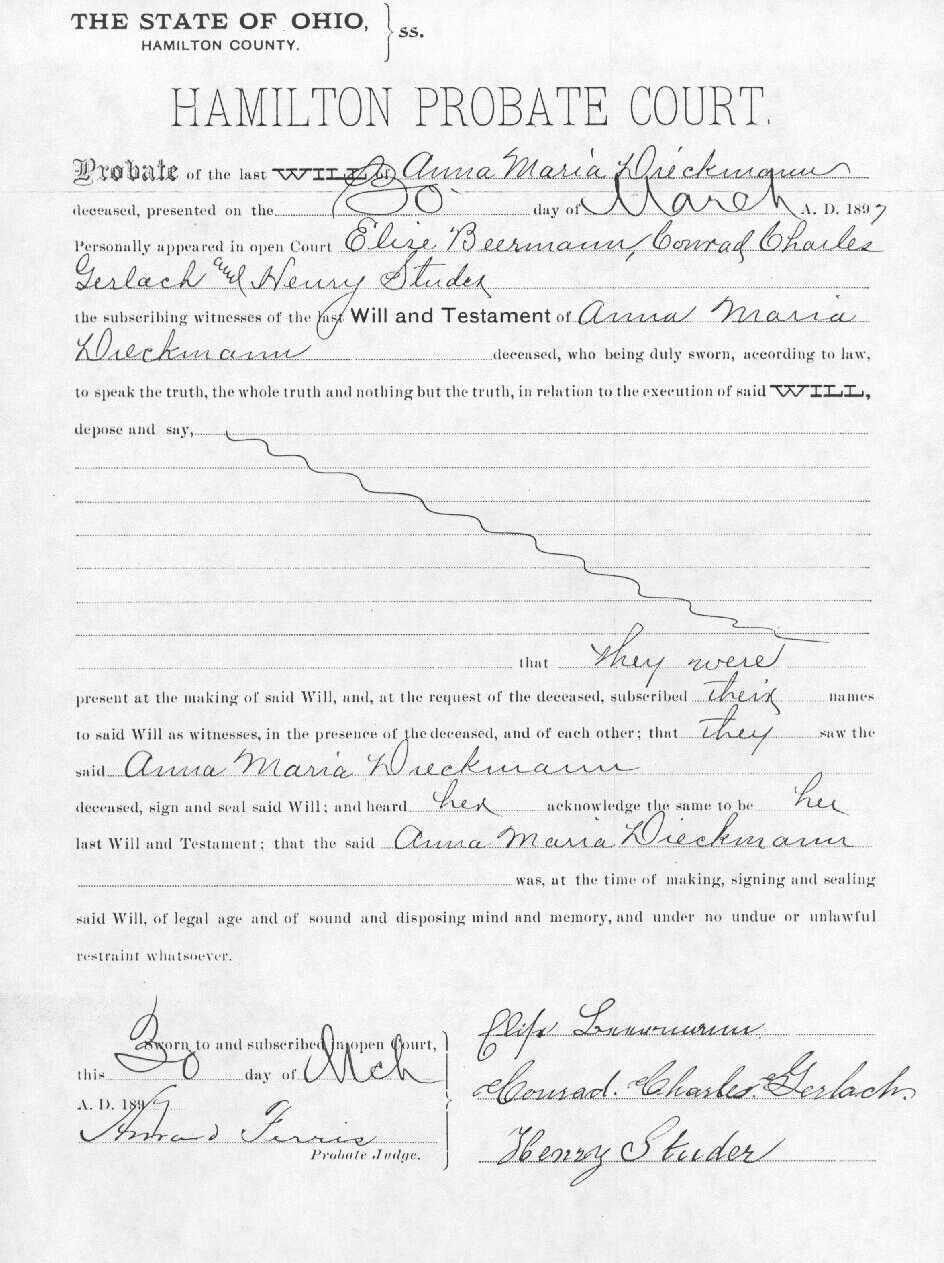 THE STATE OF OHIO, } ss.
HAMILTON COUNTY.
HAMILTON PROBATE COURT.
Probate of the last WILL of Anna Maria Dieckmann
deceased, presented on the 30 day of March A. D. 1897
Personally appeared in open Court Elise Beermann, Conrad Charles
Gerlach and Henry Studer
the subscribing witnesses of the last Will and Testament of Anna Maria
Dieckmann deceased, who being duly sworn, according to law,
to speak the truth, the whole truth and nothing but the truth, in relation to the execution of said WILL,
depose and say,
that they were
present at the making of said Will, and, at the request of the deceased, subscribed their names
to said Will as witnesses, in the presence of the deceased, and of each other; that they saw the
said Anna Maria Dieckmann
deceased, sign and seal said Will; and heard her acknowledge the same to be her
last Will and Testament; that the said Anna Maria Dieckmann
was, at the time of making, signing and sealing
said Will, of legal age and of sound and disposing mind and memory, and under no undue or unlawful
restraint whatsoever.
Sworn to and subscribed in open Court,
this 30 day of Mch
A. D. 1897
Ferris
Probate Judge.
Elise Beermann
Conrad. Charles. Gerlach.
Henry Studer